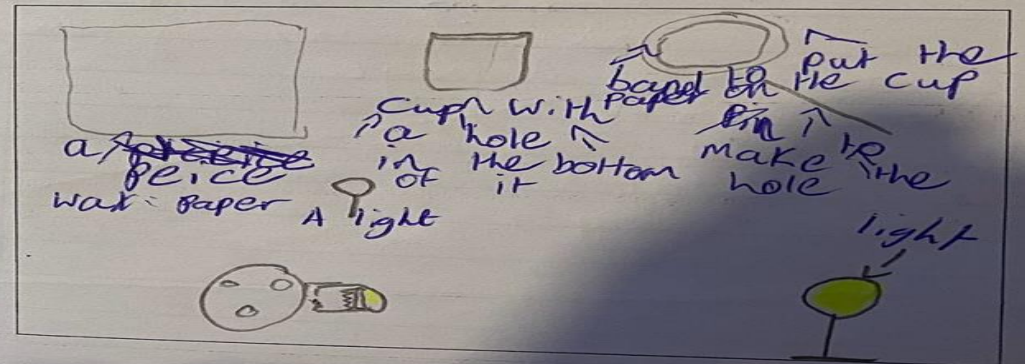 a peice
wax paper
Cup with
a hole
in the bottom
of it
A light
band to put the
paper on the cup
Pin to
make the
hole
light